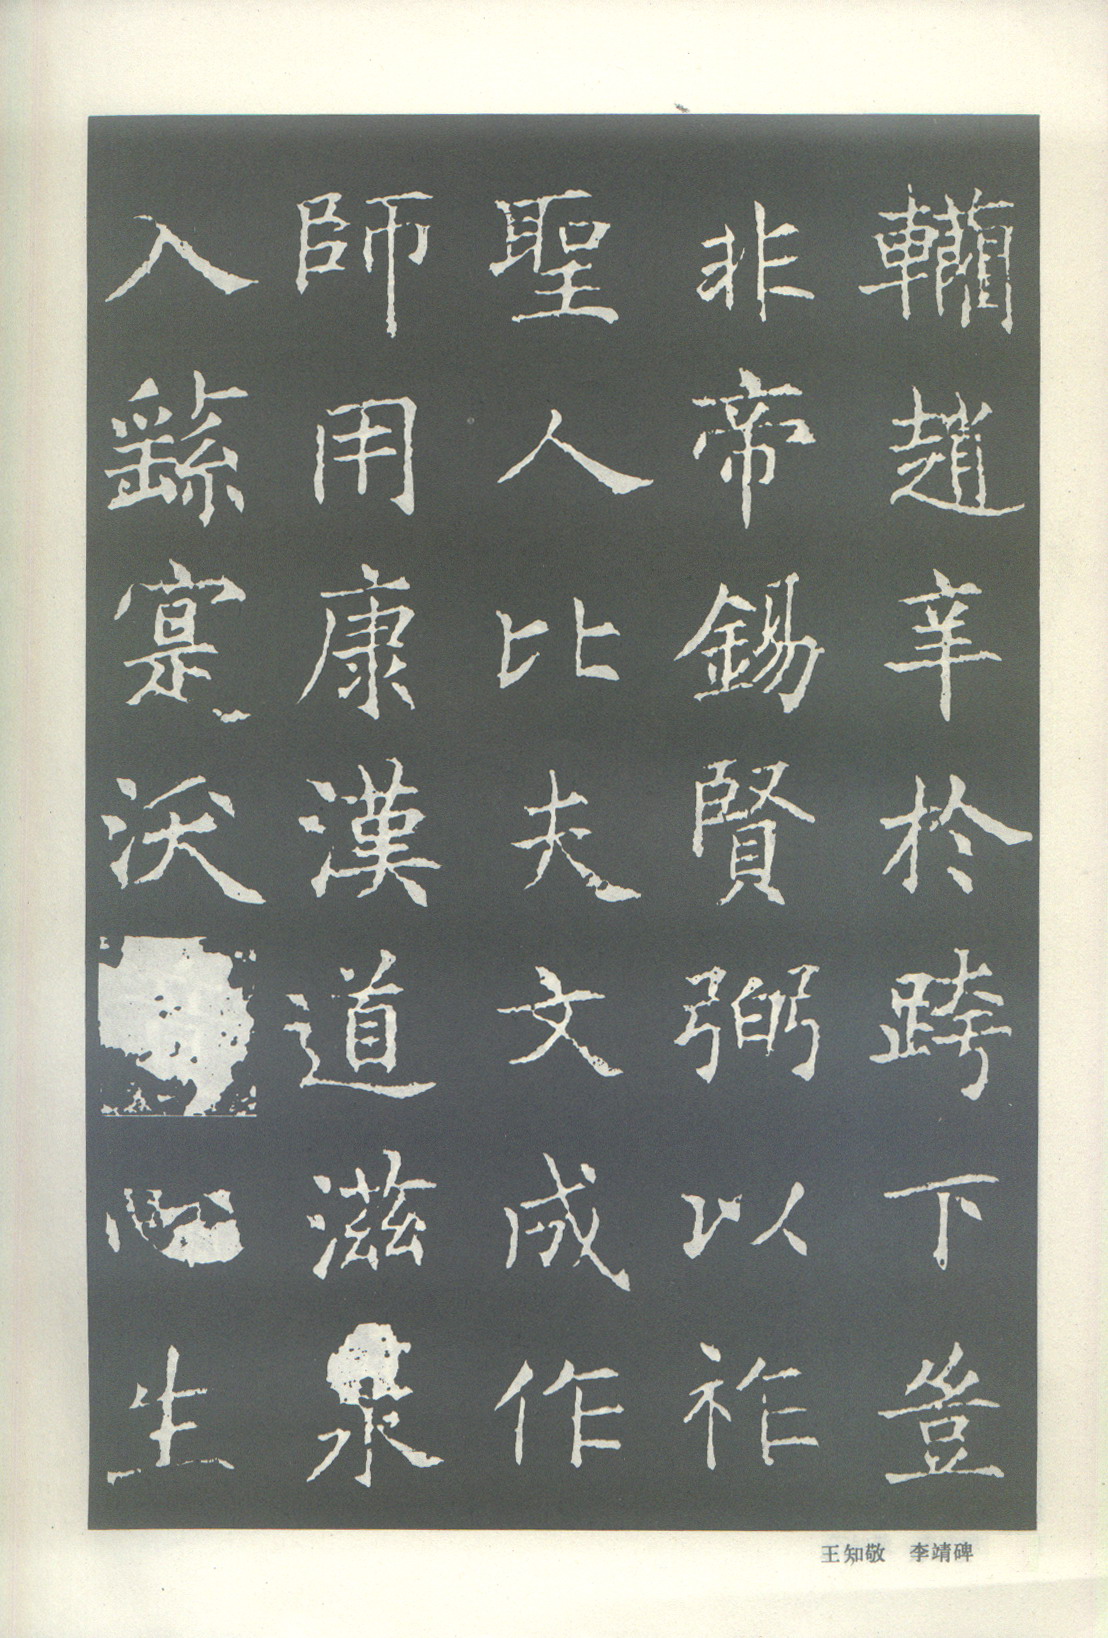 轥趙辛於跨下豈
非帝錫賢弼以祚
聖人比夫文成作
師用康漢道滋泉
入繇寔沃心生
王知敬 李靖碑